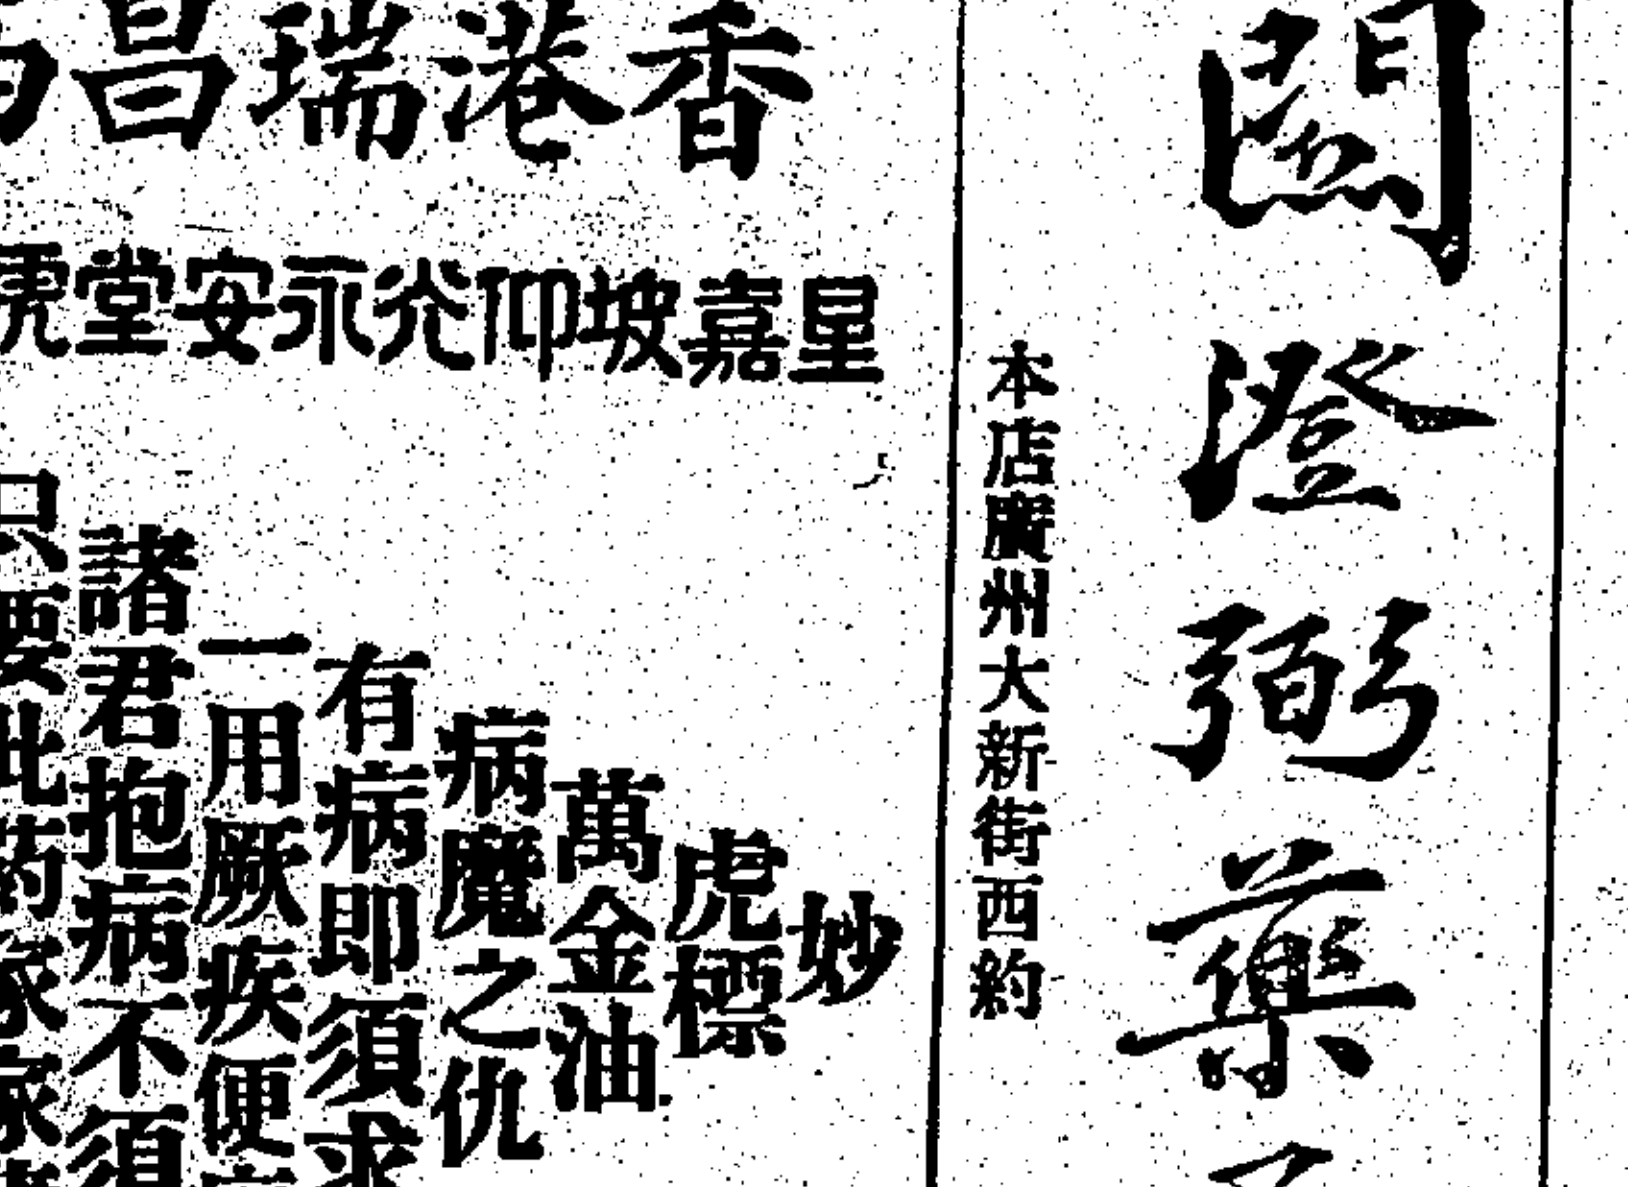 澄弼藥
本店廣州大新街西約
香港瑞昌
星嘉坡仰光永安堂虎
妙
虎標
萬金油
病魔之仇
有病即須求
一用厥疾便
諸君抱病不須
只要此药家家